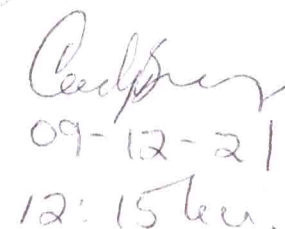 09-12-21
12:15hrs.